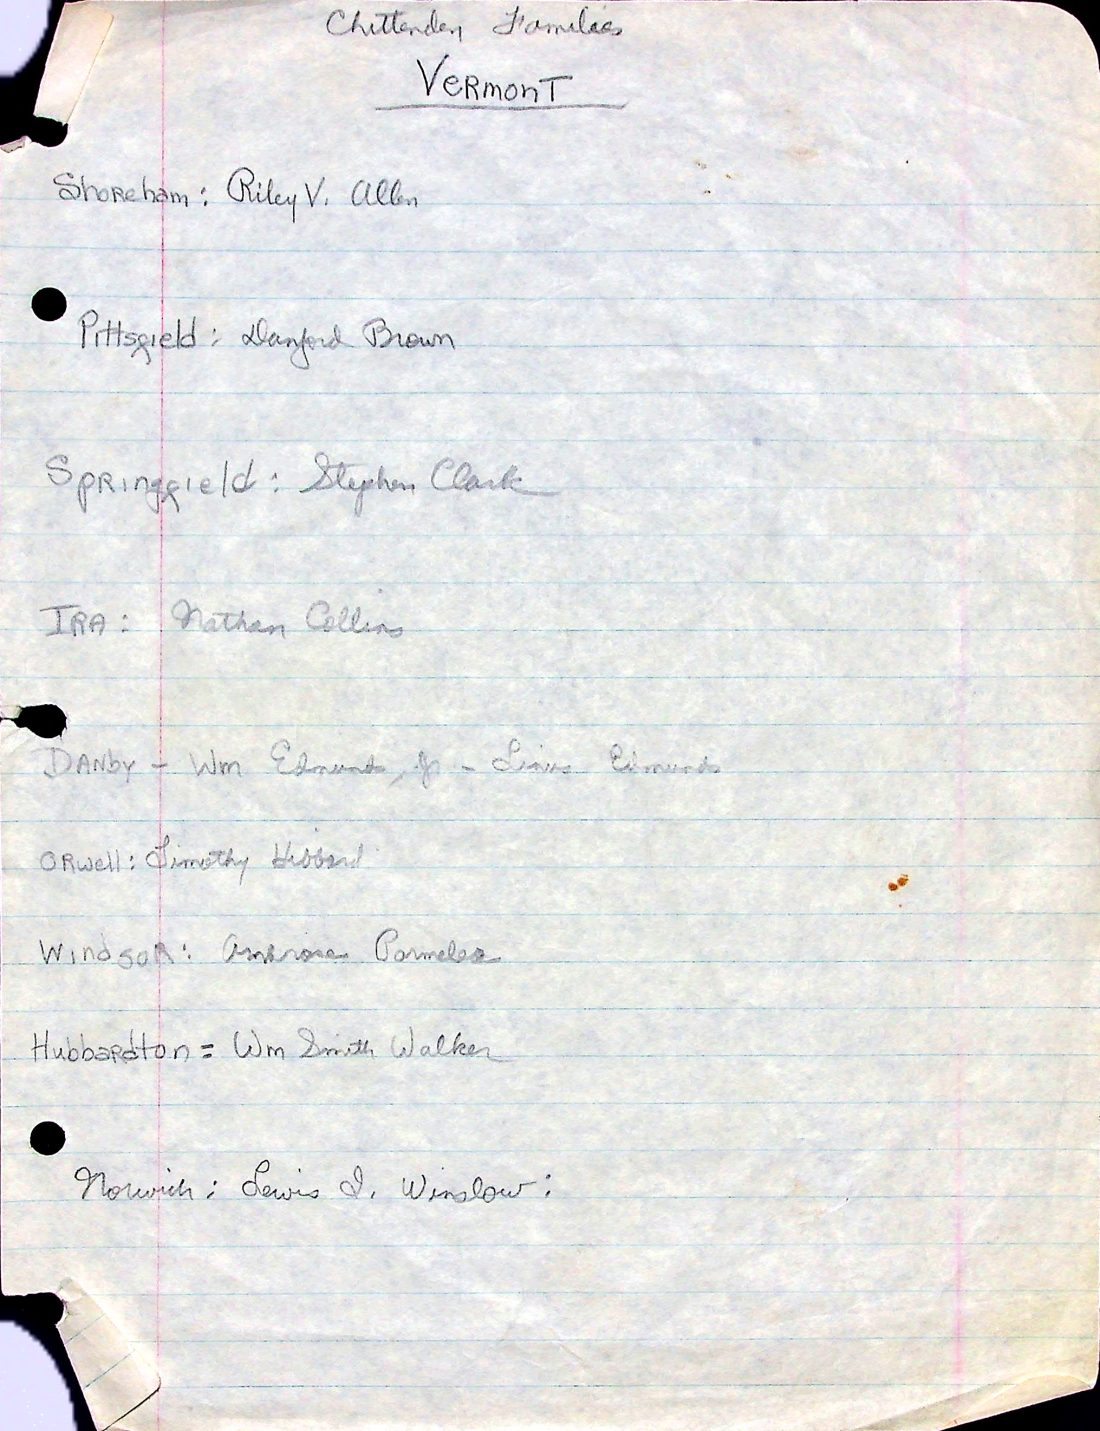 Chittenden Families
VERMONT
Shoreham: Riley V. Allen
Pittsfield: Danford Brown
Springfield: Stephen Clark
IRA: Nathan Collins
DANby - Wm Edmunds, Jr - Linus Edmunds
ORwell: Timothy Hibbard
WindsoR: Ambrose Parmelee
Hubbardton = Wm Smith Walker
Norwich: Lewis I. Winslow: